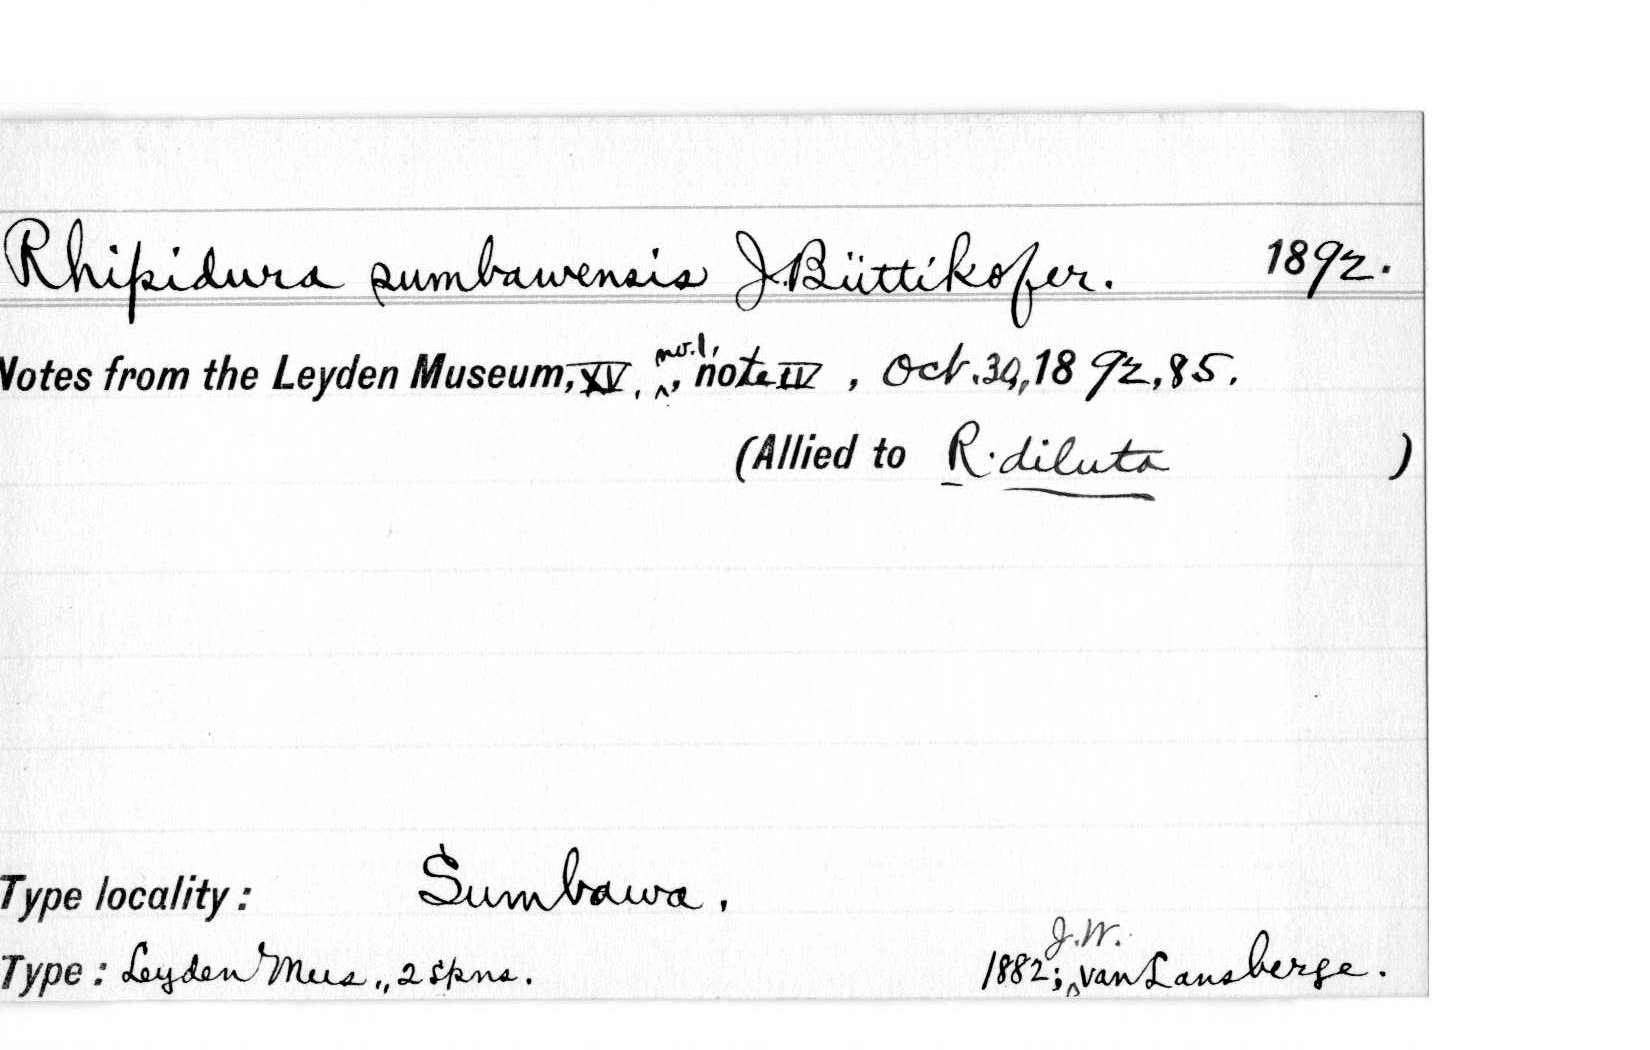 Rhipidura sumbawensis J. Büttikofer. 1892.
Notes from the Leyden Museum, XV, no.1, note IV, Oct. 30, 1892, 85.
(Allied to R. diluta )
Type locality: Sumbawa.
Type: Leyden Mus., 2 spns. 1882; J.W. van Lansberge.